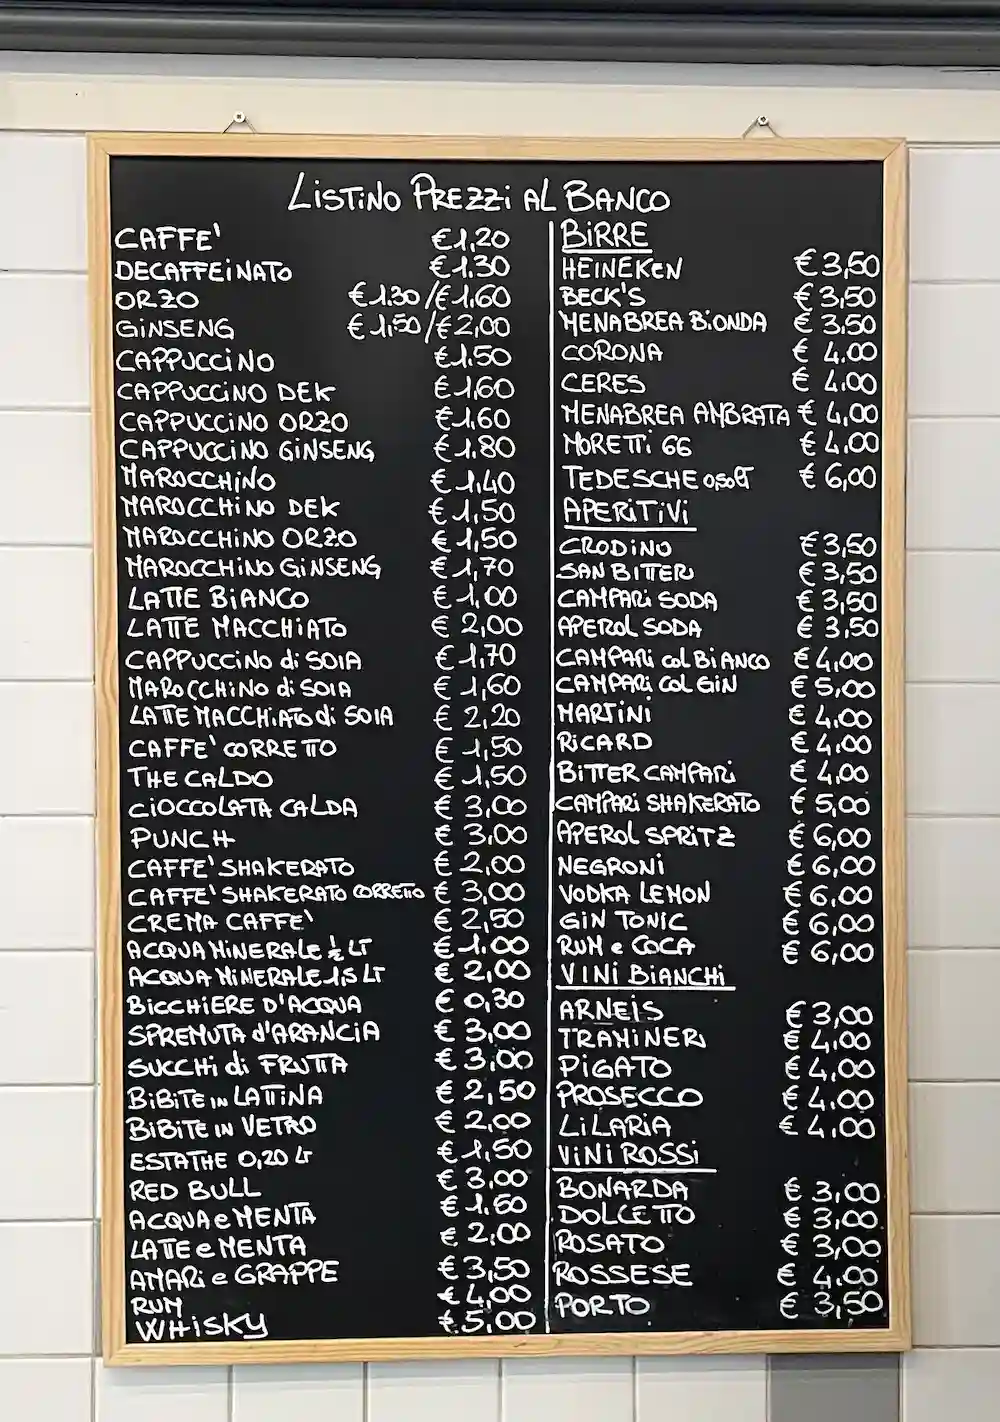 LISTINO PREZZI AL BANCO
CAFFE' € 1,20
DECAFFEINATO € 1.30
ORZO € 1.30/€ 1,60
GINSENG € 1,50/€ 2,00
CAPPUCCINO € 1.50
CAPPUCCINO DEK € 1,60
CAPPUCCINO ORZO € 1.60
CAPPUCCINO GINSENG € 1.80
MAROCCHINO € 1,40
MAROCCHINO DEK € 1,50
MAROCCHINO ORZO € 1,50
MAROCCHINO GINSENG € 1,70
LATTE BIANCO € 1,00
LATTE MACCHIATO € 2,00
CAPPUCCINO di SOIA € 1,70
MAROCCHINO di SOIA € 1,60
LATTE MACCHIATO di SOIA € 2,20
CAFFE' CORRETTO € 1,50
THE CALDO € 1,50
CIOCCOLATA CALDA € 3,00
PUNCH € 3,00
CAFFE' SHAKERATO € 2,00
CAFFE' SHAKERATO CORRETTO € 3,00
CREMA CAFFE' € 2,50
ACQUA MINERALE ½ LT € 1.00
ACQUA MINERALE 1,5 LT € 2,00
BICCHIERE D'ACQUA € 0,30
SPREMUTA d'ARANCIA € 3,00
SUCCHI di FRUTTA € 3,00
BIBITE IN LATTINA € 2,50
BIBITE IN VETRO € 2,00
ESTATHE 0,20 LT € 1,50
RED BULL € 3,00
ACQUA e MENTA € 1.60
LATTE e MENTA € 2,00
AMARI e GRAPPE € 3,50
RUM € 4,00
WHISKY € 5,00
BIRRE
HEINEKEN € 3,50
BECK'S € 3,50
MENABREA BIONDA € 3,50
CORONA € 4,00
CERES € 4.00
MENABREA AMBRATA € 4,00
MORETTI 66 € 4,00
TEDESCHE 0,50LT € 6,00
APERITIVI
CRODINO € 3,50
SAN BITTER € 3,50
CAMPARI SODA € 3,50
APEROL SODA € 3,50
CAMPARI col BIANCO € 4,00
CAMPARI col GIN € 5,00
MARTINI € 4,00
RICARD € 4,00
BITTER CAMPARI € 4,00
CAMPARI SHAKERATO € 5,00
APEROL SPRITZ € 6,00
NEGRONI € 6,00
VODKA LEMON € 6,00
GIN TONIC € 6,00
RUM e COCA € 6,00
VINI BIANCHI
ARNEIS € 3,00
TRAMINER € 4,00
PIGATO € 4,00
PROSECCO € 4,00
LILARIA € 4,00
VINI ROSSI
BONARDA € 3,00
DOLCETTO € 3,00
ROSATO € 3,00
ROSSESE € 4.00
PORTO € 3,50